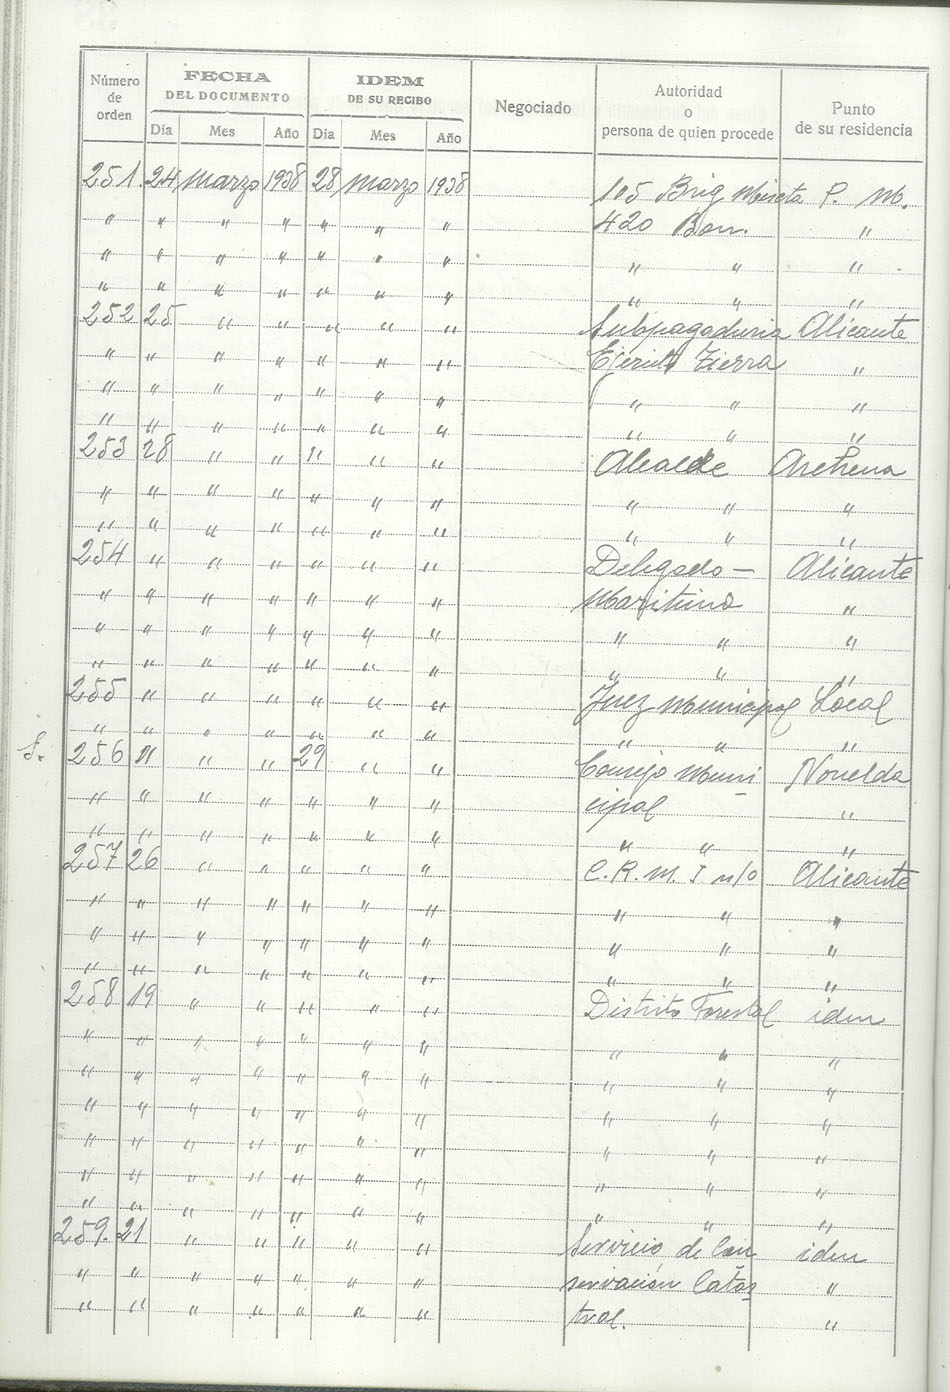 Número de orden | FECHA DEL DOCUMENTO | IDEM DE SU RECIBO | Negociado | Autoridad o persona de quien procede | Punto de su residencia
Día | Mes | Año | Día | Mes | Año
251. 24 Marzo 1938 28 Marzo 1938 105 Brig Mixta P. M.
" " " " " " " 420 Bon. "
" " " " " " " " " "
" " " " " " " " " "
252 25 " " " " " Subpagaduria Alicante
" " " " " " " Ejército Tierra "
" " " " " " " " " "
" " " " " " " " " "
253 28 " " " " " Alcalde Archena
" " " " " " " " " "
" " " " " " " " " "
254 " " " " " " Delegado — Alicante
" " " " " " " Maritimo "
" " " " " " " " " "
" " " " " " " " " "
255 " " " " " " Juez Municipal Local
" " " " " " " " " "
S. 256 " " " 29 " " Consejo Muni Novelda
" " " " " " " cipal "
" " " " " " " " " "
257 26 " " " " " C.R.M.I n/o Alicante
" " " " " " " " " "
" " " " " " " " " "
" " " " " " " " " "
258 19 " " " " " Distrito Forestal idem
" " " " " " " " " "
" " " " " " " " " "
" " " " " " " " " "
" " " " " " " " " "
" " " " " " " " " "
" " " " " " " " " "
259. 21 " " " " " Servicio de Con idem
" " " " " " " servación Catas "
" " " " " " " tral. "